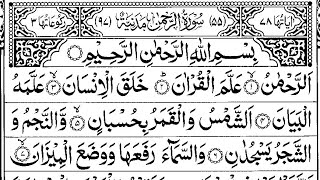 اٰیَاتُهَا ٧٨ (٥٥) سُوْرَةُ الرَّحْمٰنِ مَدَنِيَّةٌ (٩٧) رُكُوْعَاتُهَا ٣
بِسْمِ اللهِ الرَّحْمٰنِ الرَّحِيْمِ
اَلرَّحْمٰنُ ۙ١ عَلَّمَ الْقُرْاٰنَ ؕ٢ خَلَقَ الْاِنْسَانَ ۙ٣ عَلَّمَهُ
الْبَيَانَ ٤ اَلشَّمْسُ وَ الْقَمَرُ بِحُسْبَانٍ ۪٥ وَّ النَّجْمُ وَ
الشَّجَرُ يَسْجُدٰنِ ٦ وَ السَّمَآءَ رَفَعَهَا وَ وَضَعَ الْمِيْزَانَ ۙ٧